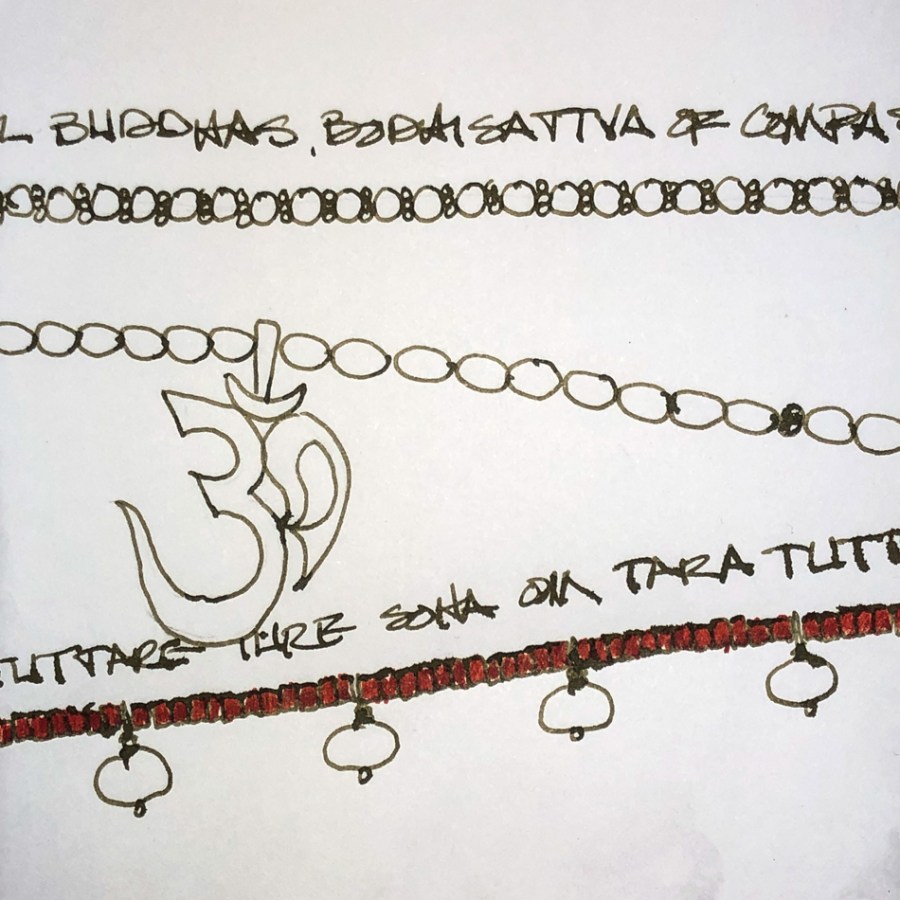 L BUDDHAS, BODHISATTVA OF COMPAS
TUTTARE TURE SOHA OM TARA TUTT